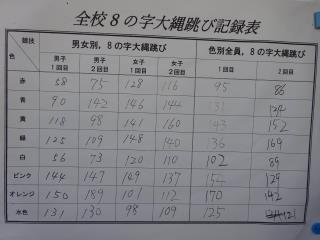 全校8の字大縄跳び記録表
競技 色 男女別，8の字大縄跳び 色別全員，8の字大縄跳び
男子1回目 男子2回目 女子1回目 女子2回目 1回目 2回目
赤 58 75 128 116 95 86
青 90 142 146 144 131 124
黄 118 98 141 160 143 152
緑 125 109 148 140 136 169
白 56 73 120 110 102 89
ピンク 144 147 149 137 154 129
オレンジ 150 189 101 112 170 142
水色 131 130 98 109 125 121